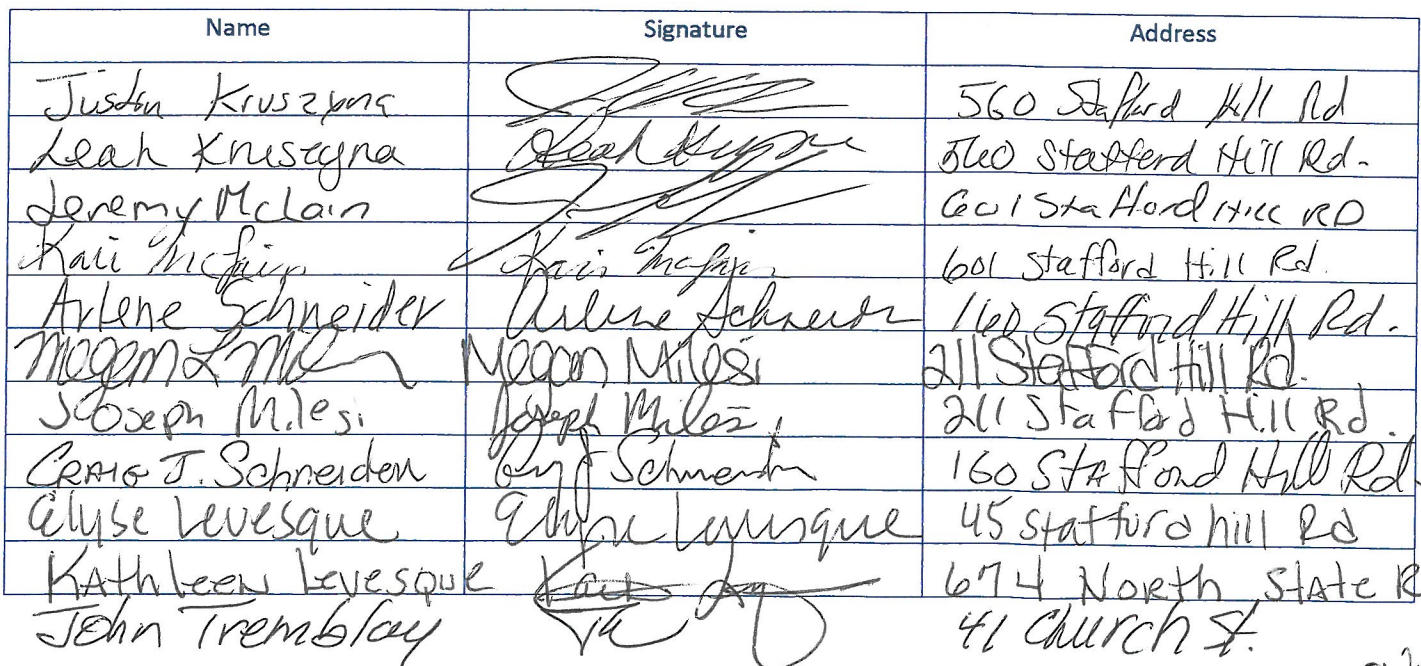 Name Signature Address
Justin Kruszyna 560 Stafford Hill Rd
Leah Kruszyna Leah 560 Stafford Hill Rd.
Jeremy McLain 601 Stafford Hill RD
Kari McLain Kari McLain 601 Stafford Hill Rd.
Arlene Schneider Arlene Schneider 160 Stafford Hill Rd.
Megan L Megan Milesi 211 Stafford Hill Rd.
Joseph Milesi Joseph Milesi 211 Stafford Hill Rd.
CRAIG J. Schneider J Schneider 160 STAfford Hill Rd.
Elyse Levesque Elyse Levesque 45 Stafford hill Rd
KAthleen Levesque 674 North STATE R
John Tremblay 41 Church St.